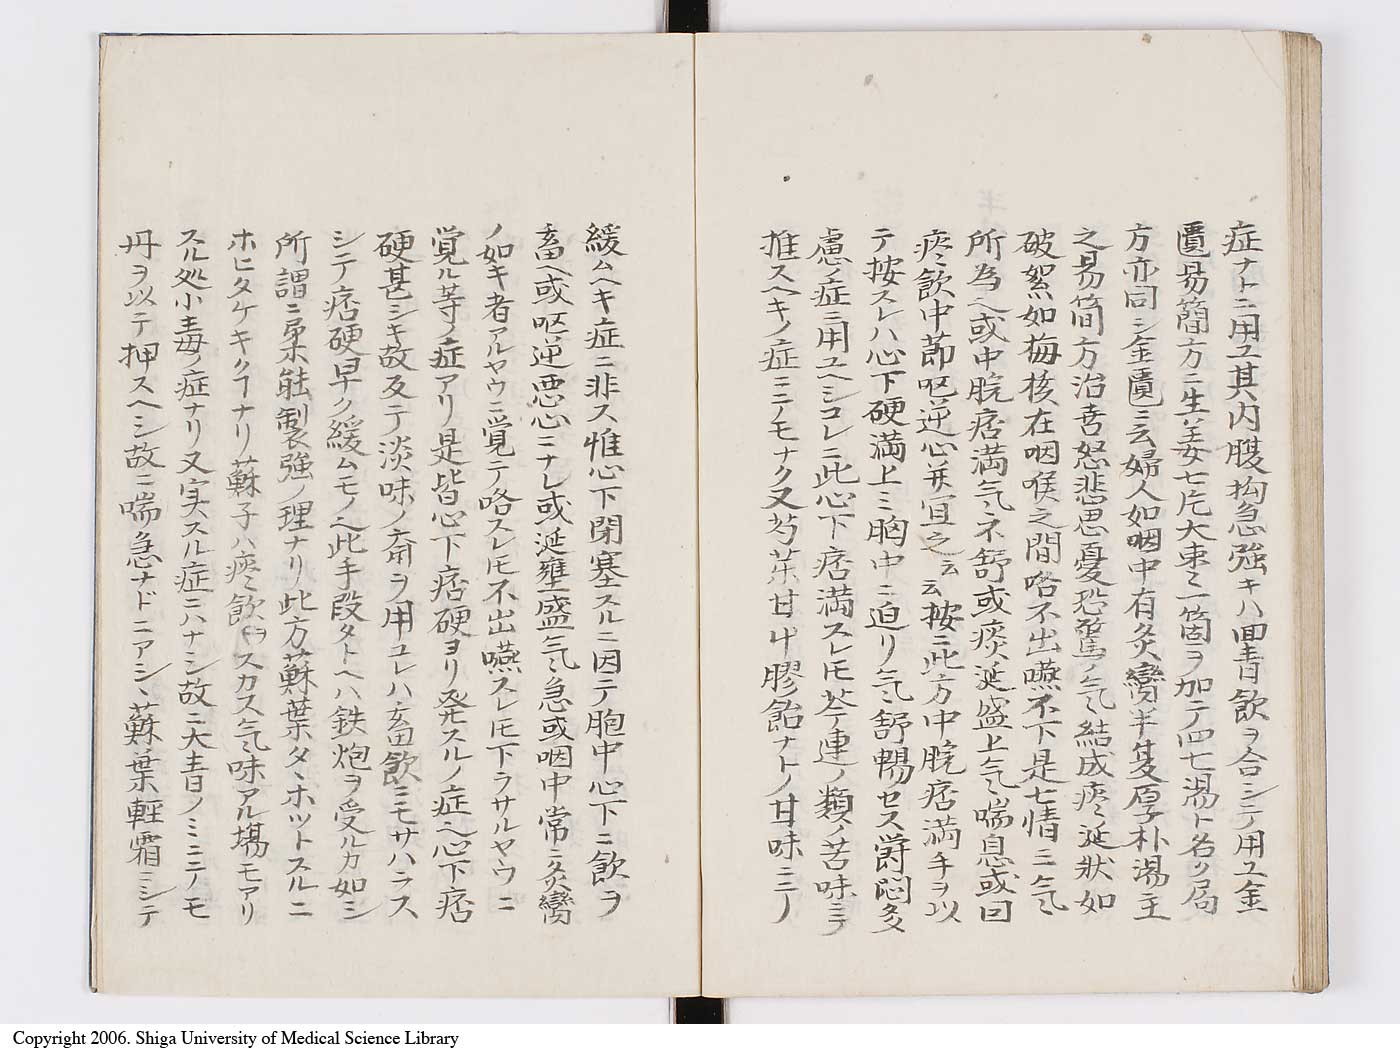 症ナトニ用ユ其内腹拘急強キハ四青飲ヲ合シテ用ユ金
匱易簡方ニ生姜七片大棗二箇ヲ加テ四七湯ト名ク局
方亦同シ金匱ニ云婦人如咽中有炙臠半夏厚朴湯主
之易簡方治喜怒悲思憂恐驚ノ気結成痰涎状如
破絮如梅核在咽喉之間咯不出嚥不下是七情ニ気ノ
所為ヘ或中脘痞満気不舒或痰涎盛上気喘息或曰
痰飲中節呕逆心并宜之云云按ニ此方中脘痞満手ヲ以
テ按スレハ心下硬満上ミ胸中ニ迫リ気舒暢セス欝悶多
慮ノ症ニ用ユヘシコレニ此心下痞満スレ𪜈芩連ノ類ノ苦味ニテ
推スヘキノ症ニ二ノモナク又芍薬甘艸膠飴ナトノ甘味ニテ
緩ムヘキ症ニ非ス惟心下閉塞スルニ因テ胞中心下ニ飲ヲ
畜ヘ或呕逆悪心ニナレ或涎壅盛気急或咽中常ニ炙臠
ノ如キ者アルヤウニ覚テ咯スレ𪜈不出嚥スレ𪜈下ラサルヤウニ
覚ル等ノ症アリ是皆心下痞硬ヨリ発スルノ症ヘ心下痞
硬甚シキ故反テ淡味ノ剤ヲ用ユレハ畜飲ニモサハラス
シテ痞硬早ク緩ムモノヘ此手段タトヘハ鉄炮ヲ受ルカ如シ
所謂ニ柔能製強ノ理ナリ此方蘇葉タヽホツトスルニ
ホヒタケキクヿナリ蘇子ハ痰飲ヲスカス気味アル場モアリ
スル処小毒ノ症ナリ又実スル症ニハナシ故ニ大青ノミニノモ
丹ヲ以テ押スヘシ故ニ喘急ナドニアシヽ蘇葉軽霜ニシテ
Copyright 2006. Shiga University of Medical Science Library